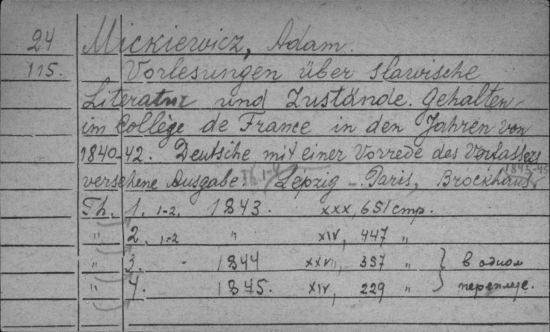 24 Mickiewicz, Adam.
115. Vorlesungen über slawische
Literatur und Zustände. Gehalten
im Collège de France in den Jahren von
1840-42. Deutsche mit einer Vorrede des Verfassers
versehene Ausgabe. Th. 1-4 Leipzig - Paris, Brockhaus 1843-45
Th. 1. 1-2. 1843. XXX, 651 стр.
" 2. 1-2 " XIV, 447 "
" 3. 1844 337 " } в одном
" 4. 1845. XIV, 229 " } переплете.